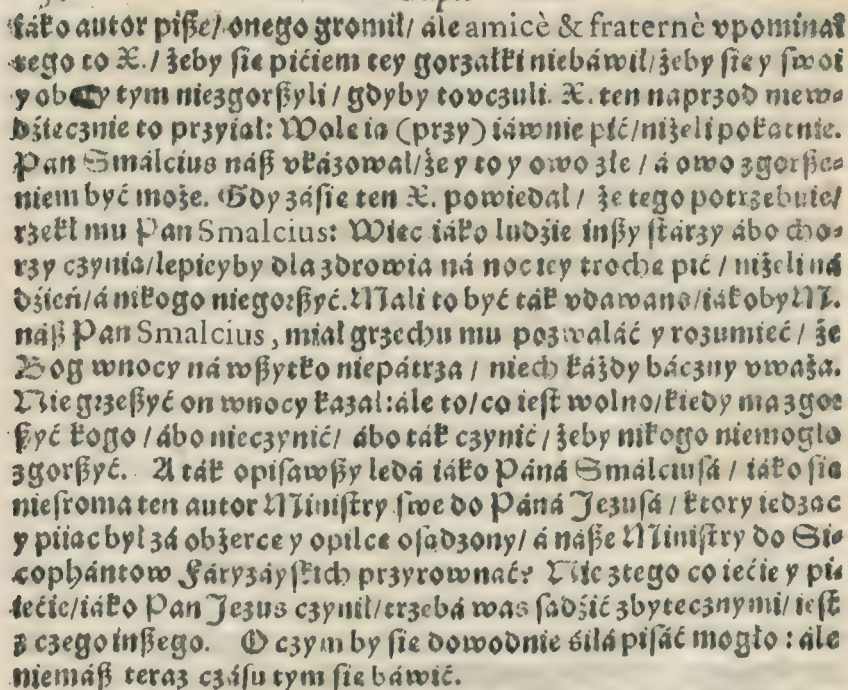 iáko autor piße/ onego gromił/ ále amicè & fraternè vpominał
tego to X./ żeby sie pićiem tey gorzałki niebáwił/ żeby sie y swoi
y obcy tym niezgorßyli / gdyby to vczuli. X. ten naprzod niewd-
dźiecznie to przyiał: Wole ia (przy) iáwnie pić/ niżeli pokatnie.
Pan Smálcius náß vkázował/ że y to y owo złe / á owo zgorße-
niem być może. Gdy záśie ten X. powiedał / że tego potrzebuie/
rzekł mu Pan Smalcius: Wiec iáko ludzie inßy stárzy ábo cho-
rzy czynia/ lepieyby dla zdrowia ná noc tey troche pić / niżeli ná
dźień/ á nikogo niegorßyć. Máli to być ták vdawano/ iákoby M.
náß Pan Smalcius, miał grzechu mu pozwaláć y rozumieć / że
Bog wnocy ná wßytko niepátrza / niech káżdy báczny vważa.
Nie grzeßyć on wnocy kazał: ále to/ co iest wolno/ kiedy ma zgor
ßyć kogo / ábo nieczynić/ ábo ták czynić / żeby nikogo niemogło
zgorßyć. A ták opisawßy ledá iáko Páná Smálciusá / iáko sie
niesroma ten autor Ministry swe do Páná Jezusá / ktory iedzac
y piiac był zá obżerce y opilce osadzony/ á náße Ministry do Si-
cophántow Fáryzáyskich przyrownáć? Nie ztego co iećie y pi-
iećie/ iáko Pan Jezus czynił/ trzebá was sadźić zbytecznymi/ iest
z czego inßego. O czym by sie dowodnie śiłá pisáć mogło : ále
niemáß teraz czásu tym sie báwić.